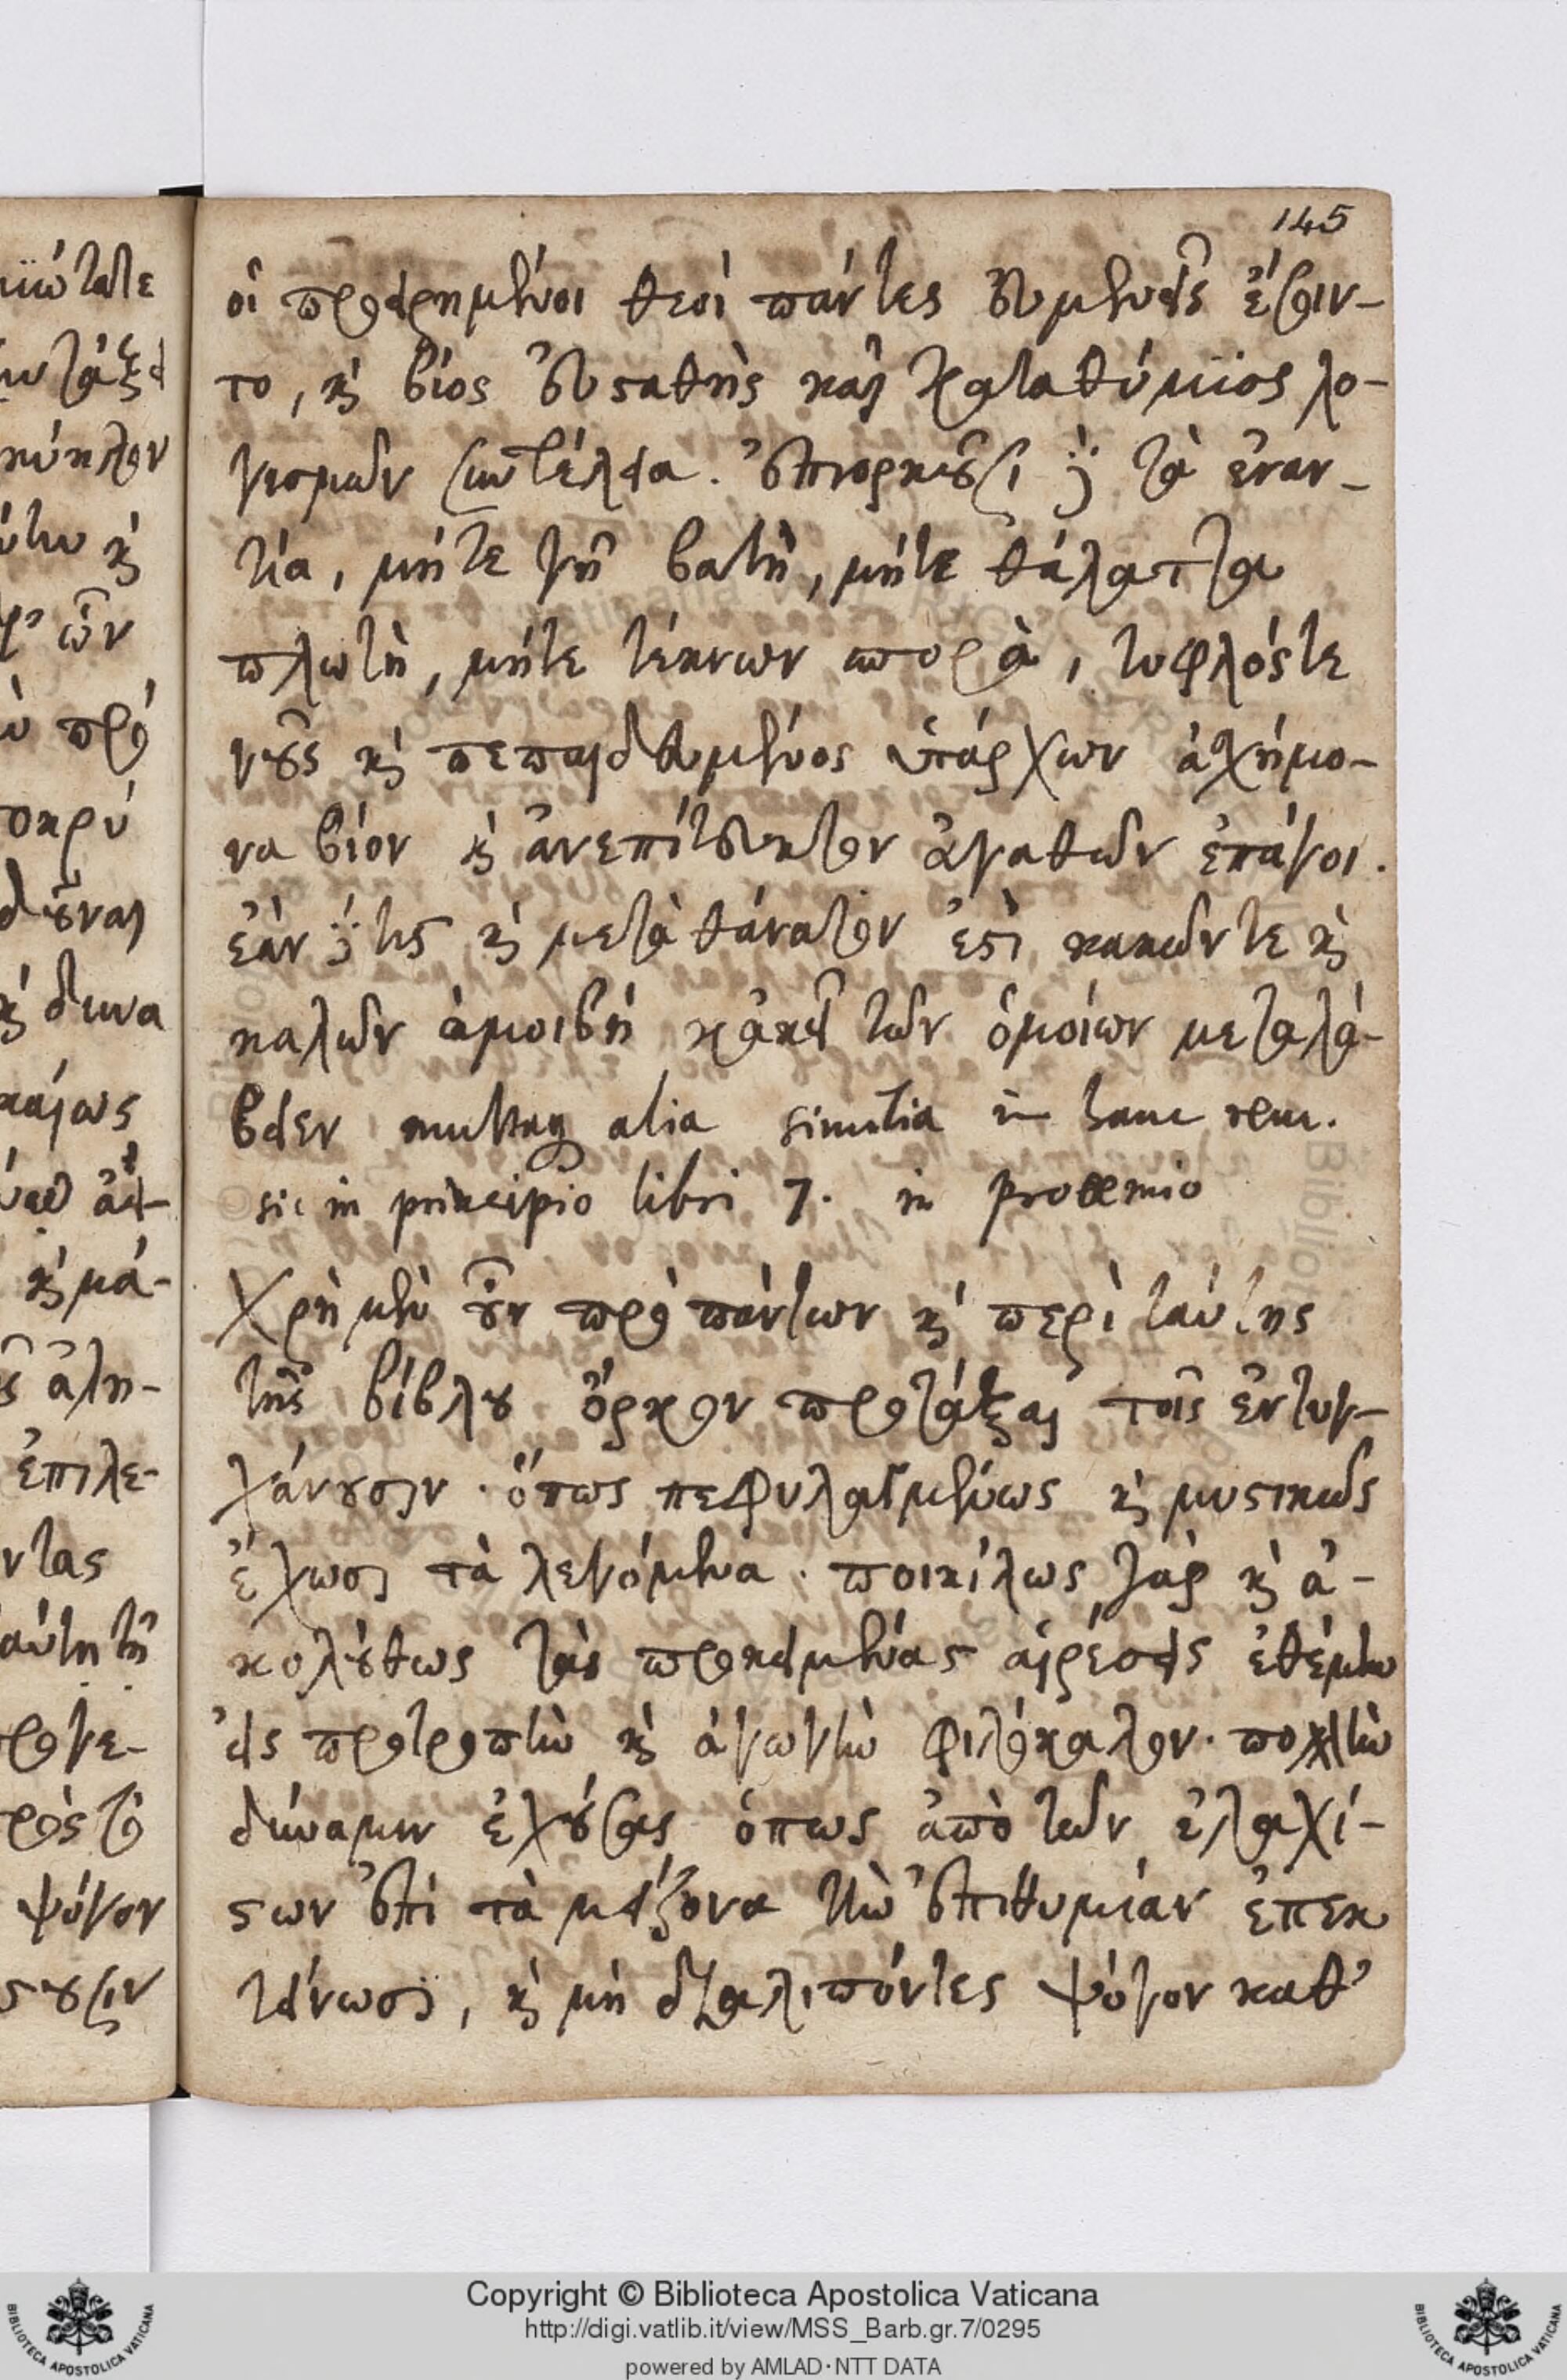 145
οἱ προειρημένοι θεοὶ πάντες εὐμενεῖς ἔσοιν-
το, καὶ βίος εὐσταθὴς καὶ καταθύμϊος λο-
γισμῶν συντέλεια. ἐπιορκοῦσι δὲ τὰ ἐναν-
τία, μήτε γῆ βατὴ, μήτε θάλαττα
πλωτὴ, μήτε τέκνων σπορὰ, τυφλός τε
νοῦς καὶ πεπαιδευμένος ὑπάρχων ἀσχήμο-
να βίον καὶ ἀνεπίτευκτον ἀγαθῶν ἐπάγοι.
ἐὰν δέ τις καὶ μετὰ θάνατον ἐστὶ κακῶν τε καὶ
καλῶν ἀμοιβὴ κἀκεῖ τῶν ὁμοίων μεταλά-
βοιεν multaq alia similia in hanc rem.
sic in principio libri 7. in prooemio
Χρὴ μὲν οὖν πρὸ πάντων καὶ περὶ ταύτης
τῆς βίβλου ὅρκον προτάξαι τοῖς ἐντυγ-
χάνουσιν. ὅπως πεφυλαγμένως καὶ μυστικῶς
ἔχωσι τὰ λεγόμενα. ποικίλως γὰρ καὶ ἀ-
κολούθως τὰς προκειμένας αἱρέσεις ἐθέμην
εἰς προτροπὴν καὶ ἀγωγὴν φιλόκαλον. πολλὴν
δύναμιν ἐχούσας ὅπως ἀπὸ τῶν ἐλαχί-
στων ἐπὶ τὰ μείζονα τὴν ἐπιθυμίαν ἐπεκ
τείνωσϊ, καὶ μὴ διαλιπόντες ψόγον καθ'
Copyright © Biblioteca Apostolica Vaticana
http://digi.vatlib.it/view/MSS_Barb.gr.7/0295
powered by AMLAD·NTT DATA